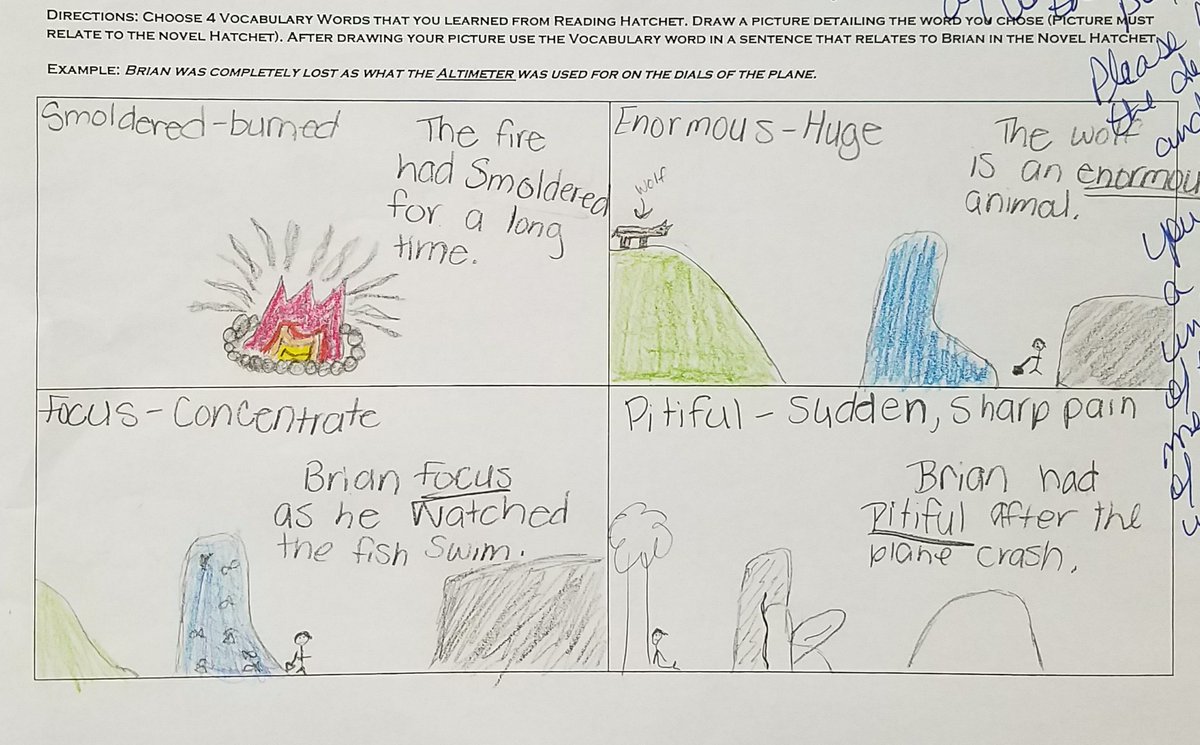 DIRECTIONS: CHOOSE 4 VOCABULARY WORDS THAT YOU LEARNED FROM READING HATCHET. DRAW A PICTURE DETAILING THE WORD YOU CHOSE (PICTURE MUST
RELATE TO THE NOVEL HATCHET). AFTER DRAWING YOUR PICTURE USE THE VOCABULARY WORD IN A SENTENCE THAT RELATES TO BRIAN IN THE NOVEL HATCHET
EXAMPLE: BRIAN WAS COMPLETELY LOST AS WHAT THE ALTIMETER WAS USED FOR ON THE DIALS OF THE PLANE.
Smoldered-burned
The fire
had Smoldered
for a long
time.
Enormous-Huge
The wolf
is an enormou
animal.
wolf
Focus-Concentrate
Brian Focus
as he Watched
the fish Swim.
Pitiful - Sudden, Sharp pain
Brian had
Pitiful after the
plane crash.
Please
the de
and
you
a